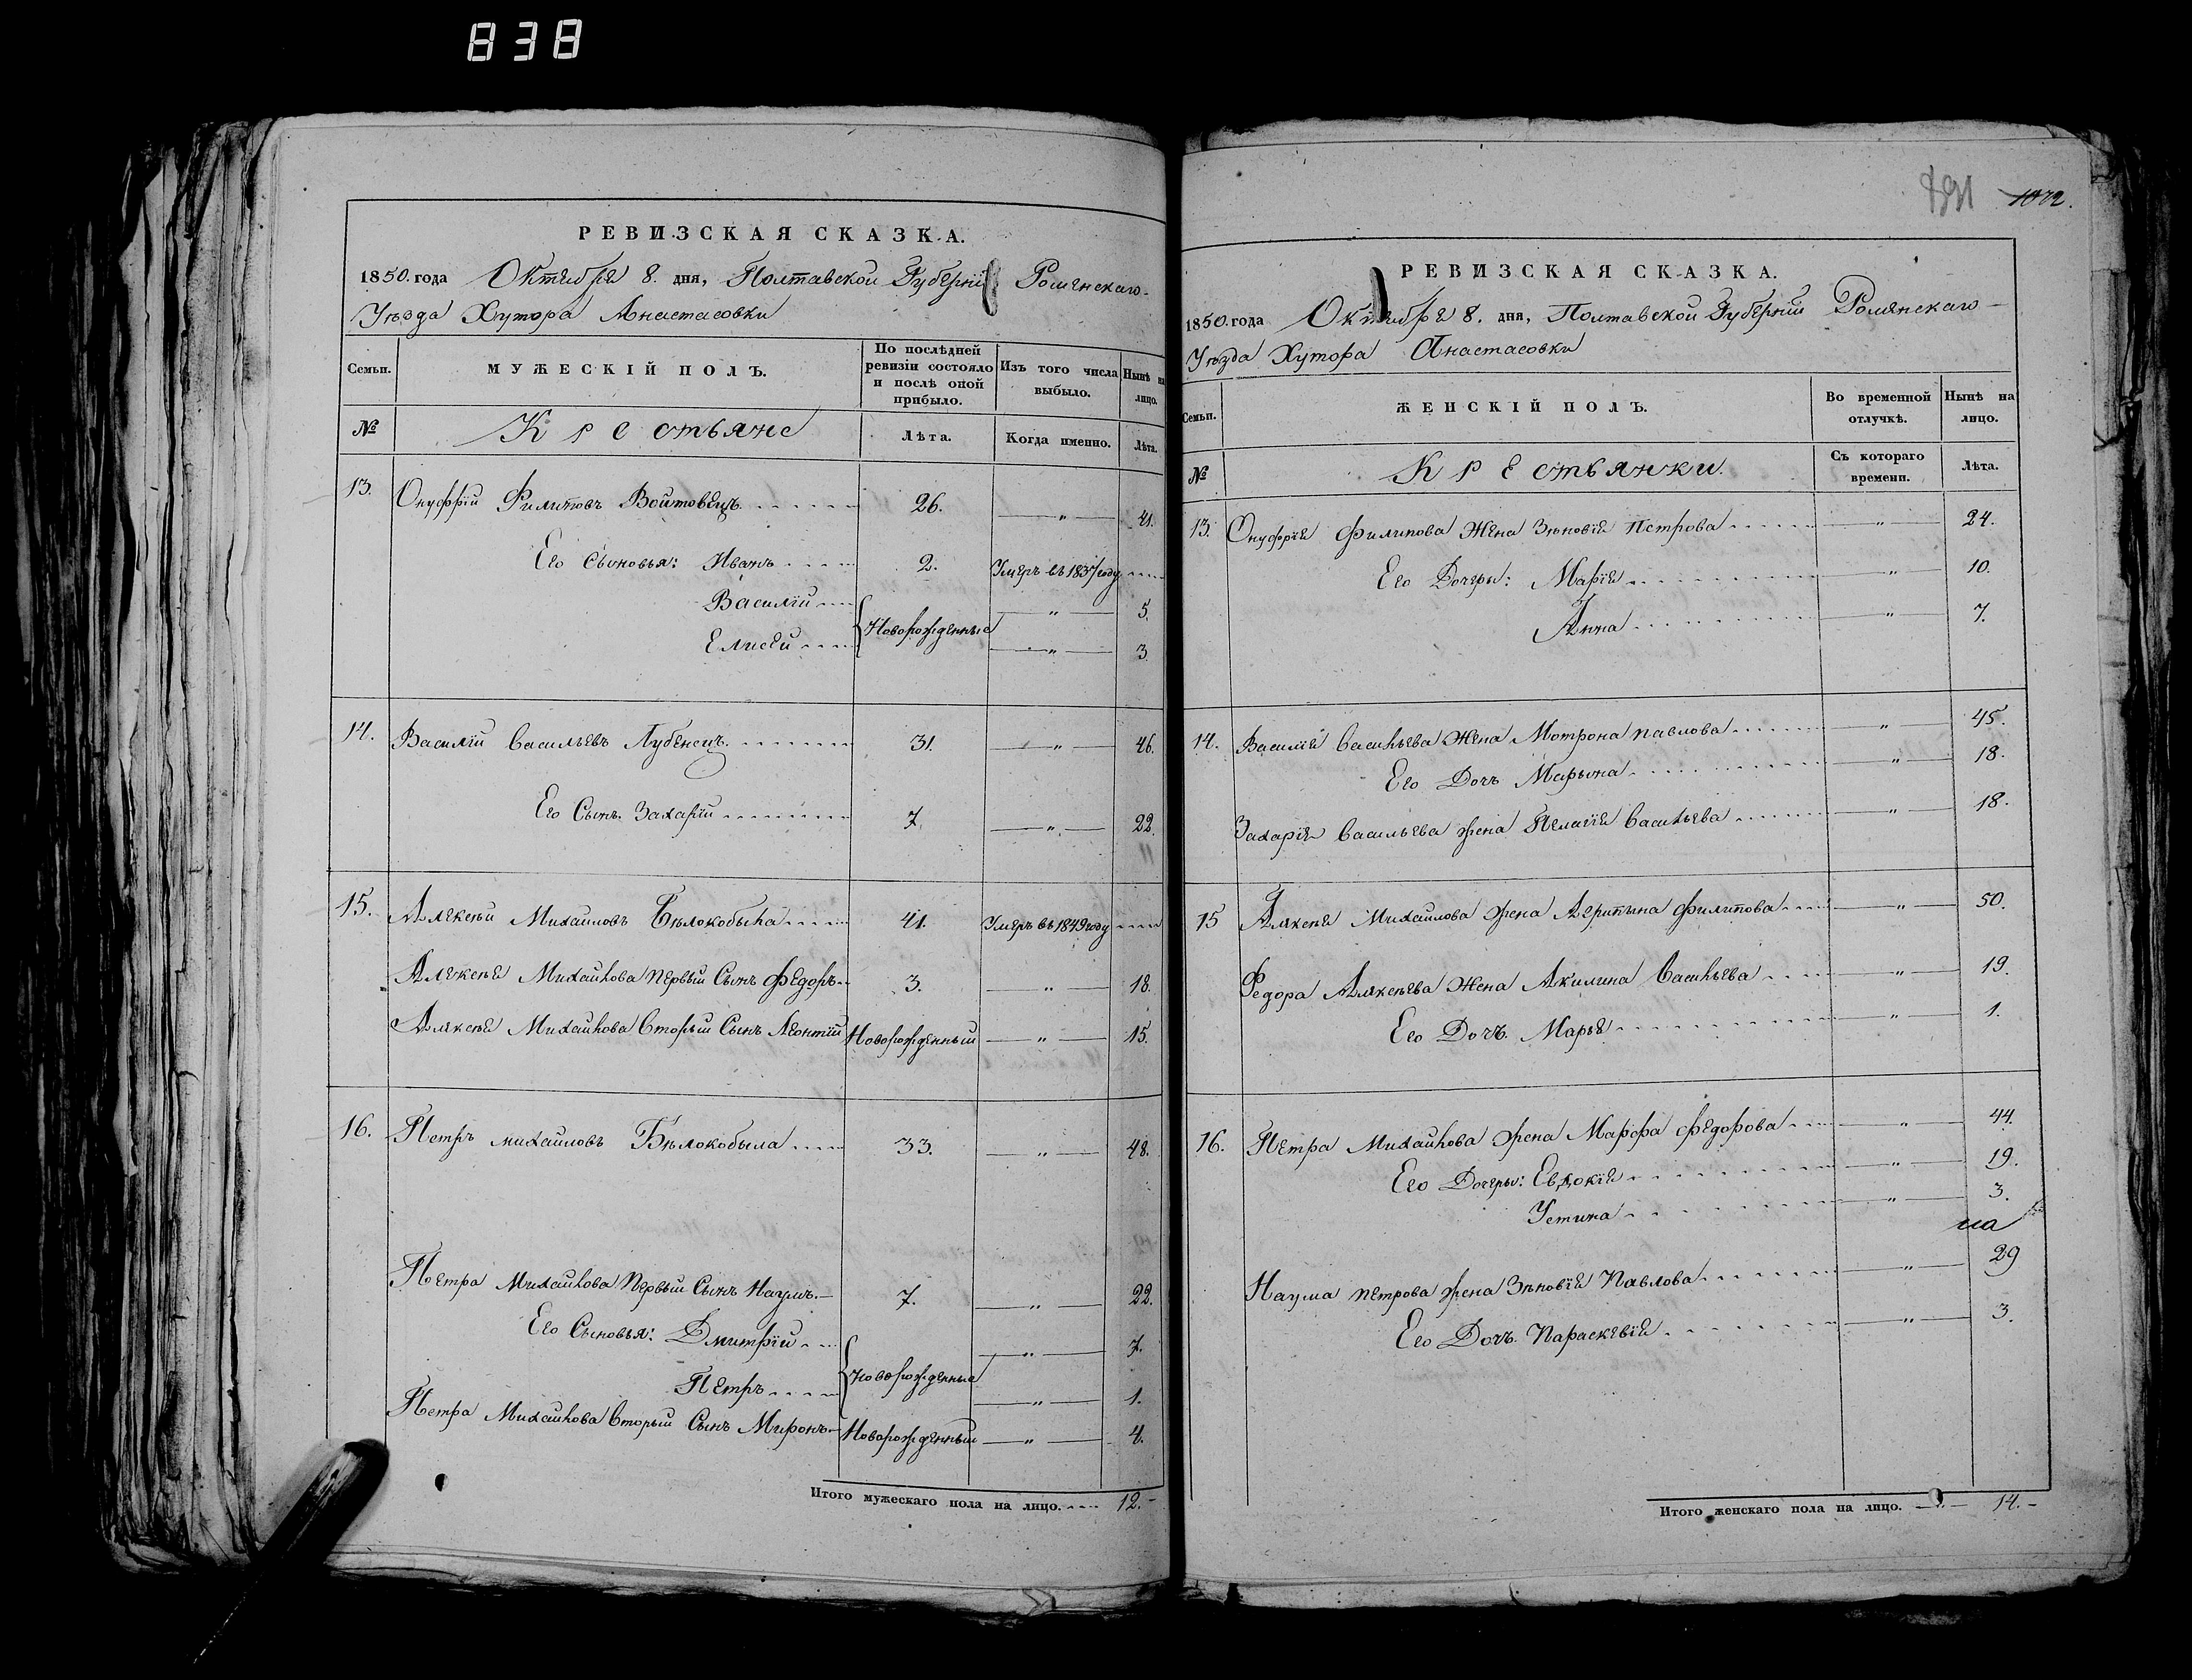 838
РЕВИЗСКАЯ СКАЗКА.
1850. года Октября 8. дня, Полтавской Губерніи Роменскаго
Уѣзда Хутора Анастасовки
Семьи.
МУЖЕСКІЙ ПОЛЪ.
По послѣдней ревизіи состояло и послѣ оной прибыло.
Изъ того числа выбыло.
Нынѣ на лицо.
№
Крестьяне
Лѣта.
Когда именно.
Лѣта.
13. Онуфрій Филиповъ Войтовецъ 26. " 41.
Его Сыновья: Иванъ 2. Умеръ въ 1837 году
Василій Новорожденные " 5.
Елисей " 3.
14. Василій Васильевъ Лубенецъ 31. " 46.
Его Сынъ Захарій 7. " 22.
15. Алексѣй Михайловъ Бѣлокобыла 41. Умеръ въ 1849 году
Алексѣя Михайлова Первый Сынъ Федоръ 3. " 18.
Алексѣя Михайлова Вторый Сынъ Леонтій Новорожденный " 15.
16. Петръ Михайловъ Бѣлокобыла 33. " 48.
Петра Михайлова Первый Сынъ Наумъ 7. " 22.
Его Сыновья: Дмитрій Новорожденные " 7.
Петръ " 1.
Петра Михайлова Вторый Сынъ Миронъ Новорожденный " 4.
Итого мужескаго пола на лицо. 12.
1072.
РЕВИЗСКАЯ СКАЗКА.
1850. года Октября 8. дня, Полтавской Губерніи Роменскаго
Уѣзда Хутора Анастасовки
Семьи.
ЖЕНСКІЙ ПОЛЪ.
Во временной отлучкѣ.
Нынѣ на лицо.
№
Крестьянки.
Съ котораго времени.
Лѣта.
13. Онуфрія Филипова Жена Зѣновія Петрова " 24.
Его Дочеры: Марія " 10.
Анна " 7.
14. Василія Васильева Жена Мотрона Павлова " 45.
Его Дочъ Марьяна " 18.
Захарія Васильева Жена Пелагія Васильева " 18.
15 Алексѣя Михайлова Жена Агрипына Филипова " 50.
Федора Алексѣева Жена Акилина Васильева " 19.
Его Дочъ. Марья " 1.
16. Петра Михайлова Жена Марфа Федорова " 44.
Его Дочеры: Евдокія " 19.
Устина " 3.
на
Наума Петрова Жена Зѣновія Павлова " 29
Его Дочъ. Параскевія " 3.
Итого женскаго пола на лицо. " 14.